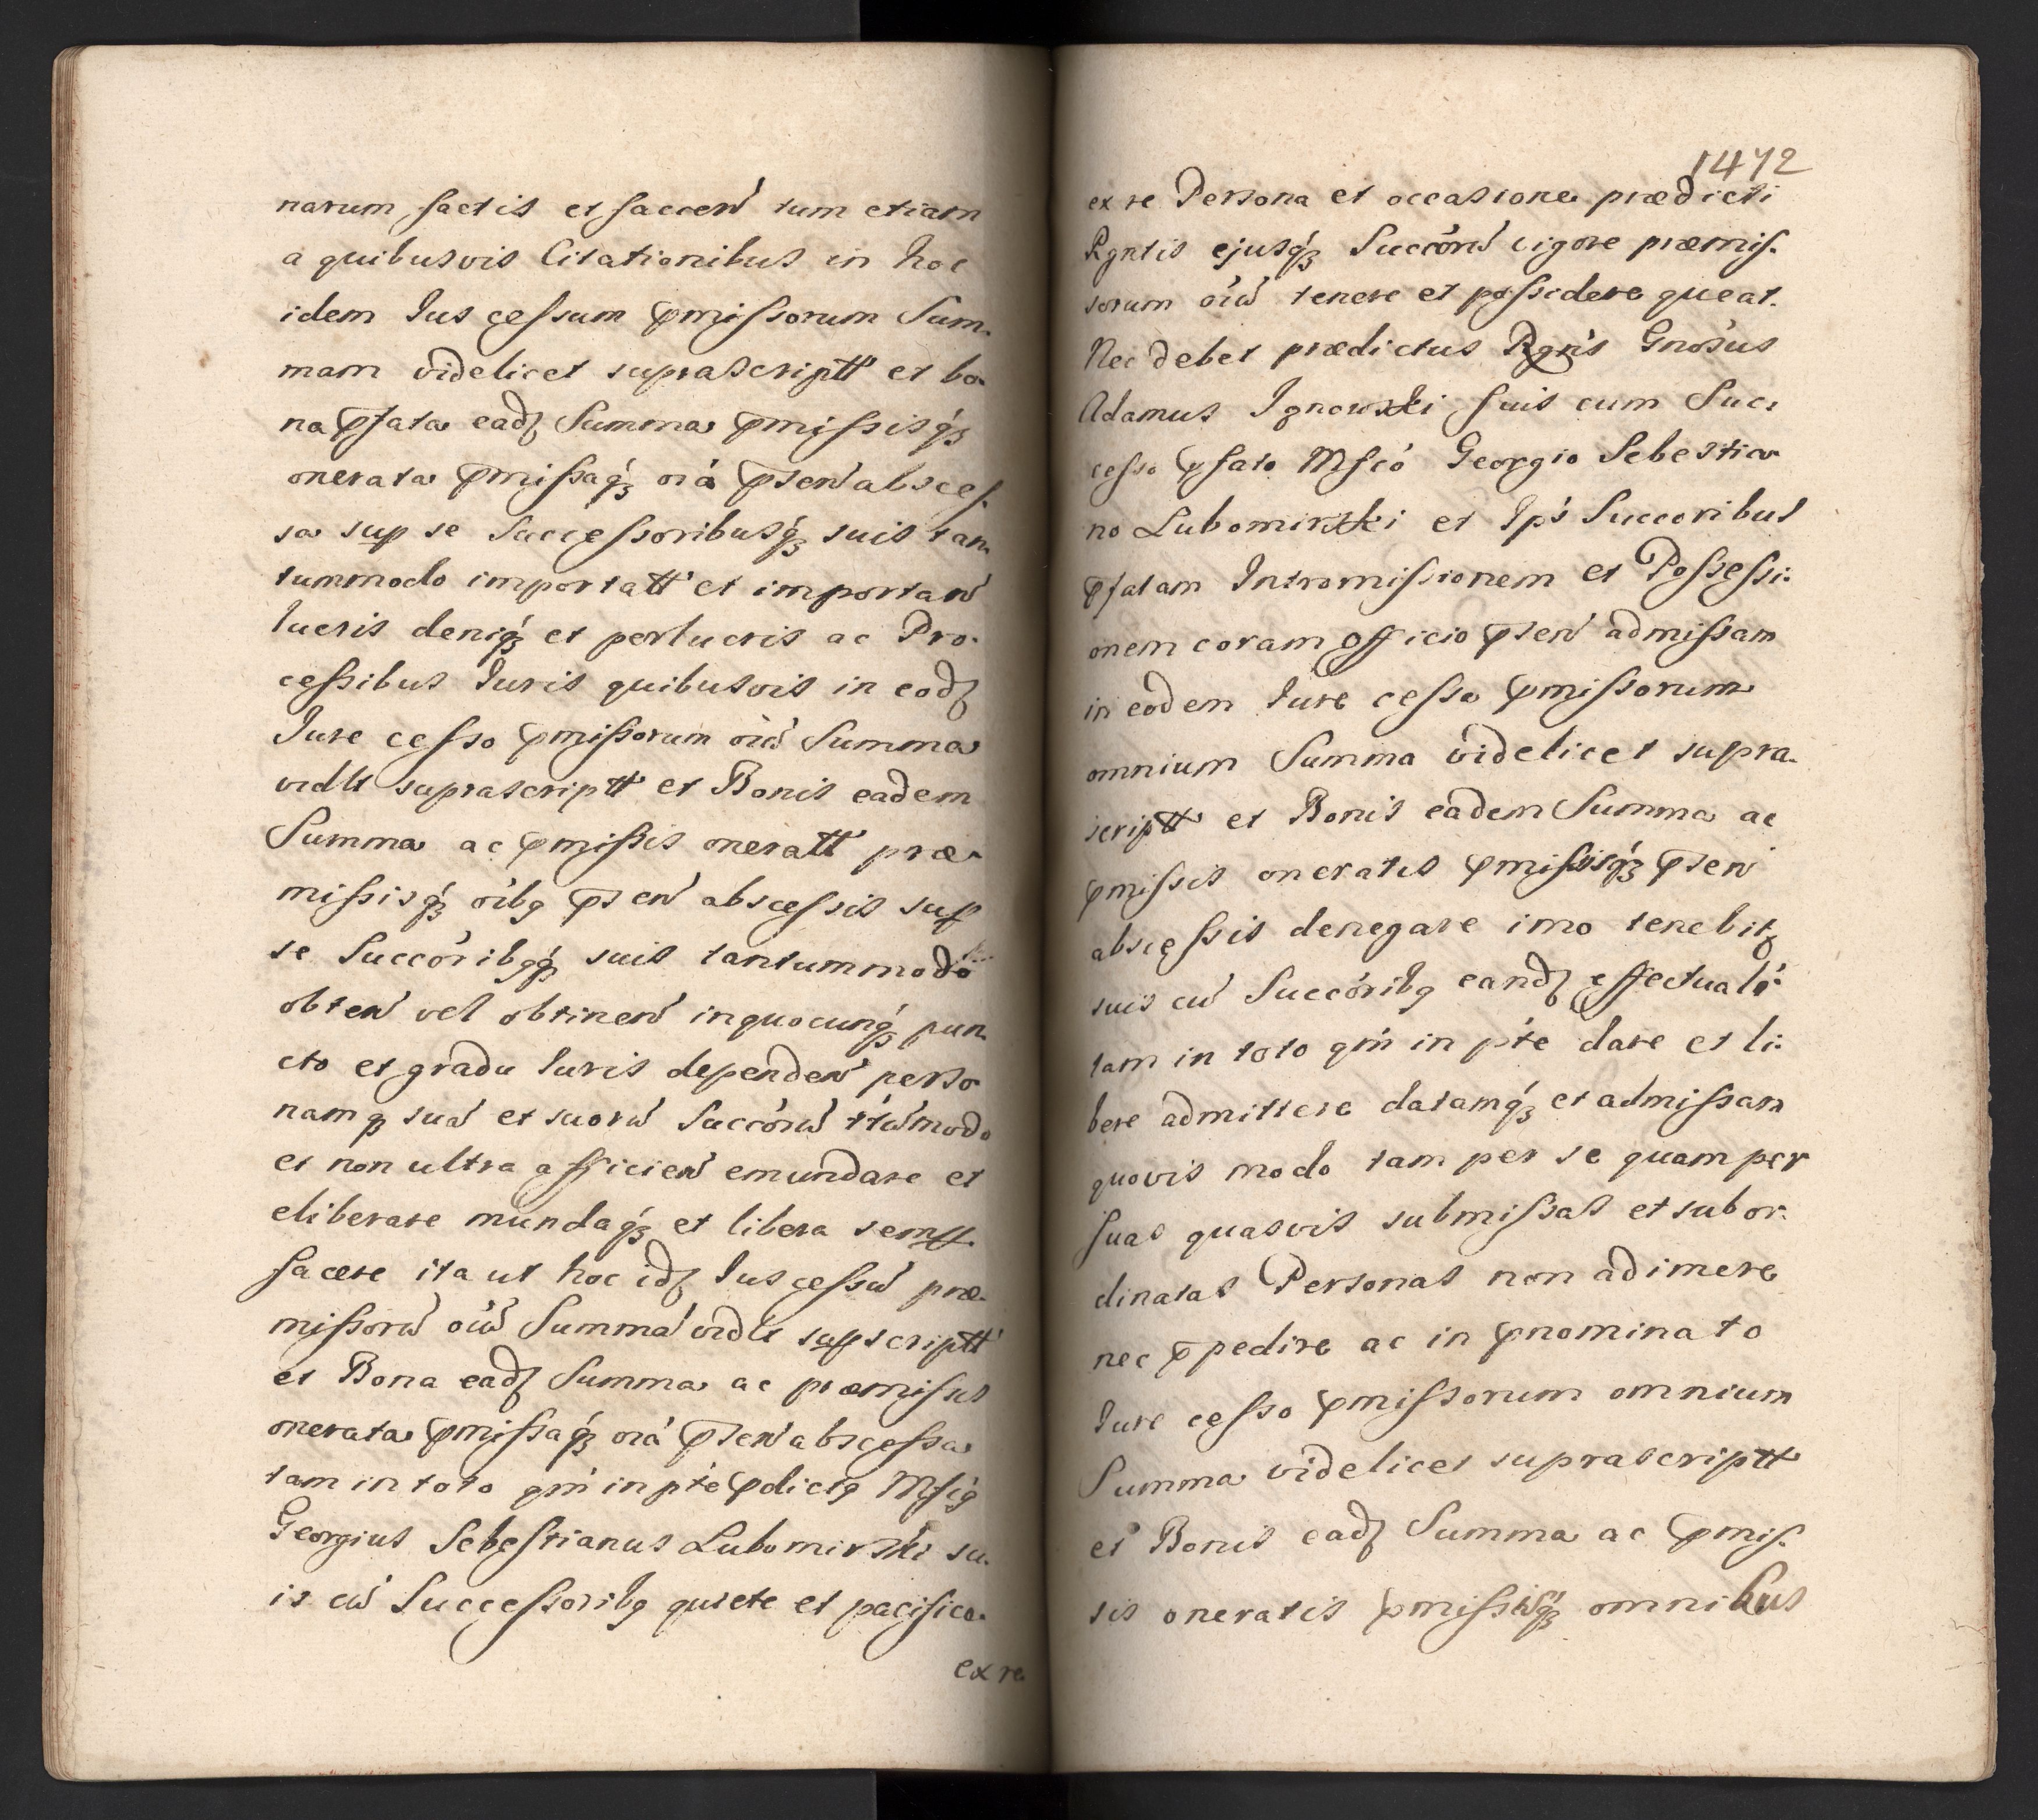 narum factis et faccen̄ tum etiam
a quibusvis Citationibus in hoc
idem Jus cessum p̄missorum Sum-
mam videlicet suprascriptt et bo-
na p̄fata ead̄ Summa p̄missisq́3
onerata p̄missaq́3 oīa p̄sen̄ absces-
sa sup se Successoribusq́3 suis tan-
tummodo importatt et importan̄
lucris deniq́3 et perlucris ac Pro-
cessibus Juris quibusvis in eod̄
Jure cesso p̄missorum oīū Summa
vidlt suprascriptt et Bonis eadem
Summa ac p̄missis oneratt præ-
missisq́3 oībg p̄sen̄ abscessis sup
se Succōribgq́3 suis tantummodo
obten̄ vel obtinen̄ inquocunq́3 pun-
cto et gradu Juris dependen̄ perso-
namq̨ suā et suorū Succōrū ttūmodo
et non ultra afficien̄ emundare et
eliberare mundaq́3 et libera semp.
facere ita ut hoc id̄ Jus cessū præ-
missorū oīū Summā vidlt supscriptt
et Bona ead̄ Summa ac præmissis
onerata p̄missaq́3 oīa p̄sen̄ abscessa
tam in toto qm̄ in pte p̄dictg Mfcg
Georgius Sebestianus Lubomirski su-
is cū Successoribg quiete et pacifice
ex re
1472
ex re Persona et occasione prædicti
Rgntis ejusq́3 Succōrū vigore præmis-
sorum oīū tenere et possidere queat.
Nec debet prædictus Rgn̄s Gnōsus
Adamus Ignowski suis cum Suc-
cesso p̄fato Mfcō Georgio Sebestia-
no Lubomirski et Ips̄ Succoribus
p̄fatam Intromissionem et Possessi-
onem coram Officio p̄sen̄ admissam
in eodem Jure cesso p̄missorum
omnium Summa videlicet supra-
scriptt et Bonis eadem Summa ac
p̄missis oneratis p̄missisq́3 p̄sen̄
abscessis denegare imo tenebit̨
suis cū Succōribg eand̄ effectualr̄
tam in toto qm̄ in pte dare et li-
bere admittere datamq́3 et admissam
quovis modo tam per se quam per
suas quasvis submissas et subor-
dinatas Personas non adimere
nec p̄pedire ac in p̄nominato
Jure cesso p̄missorum omnium
Summa videlicet suprascriptt
et Bonis ead̄ Summa ac p̄mis-
sis oneratis p̄missisq́3 omnibus